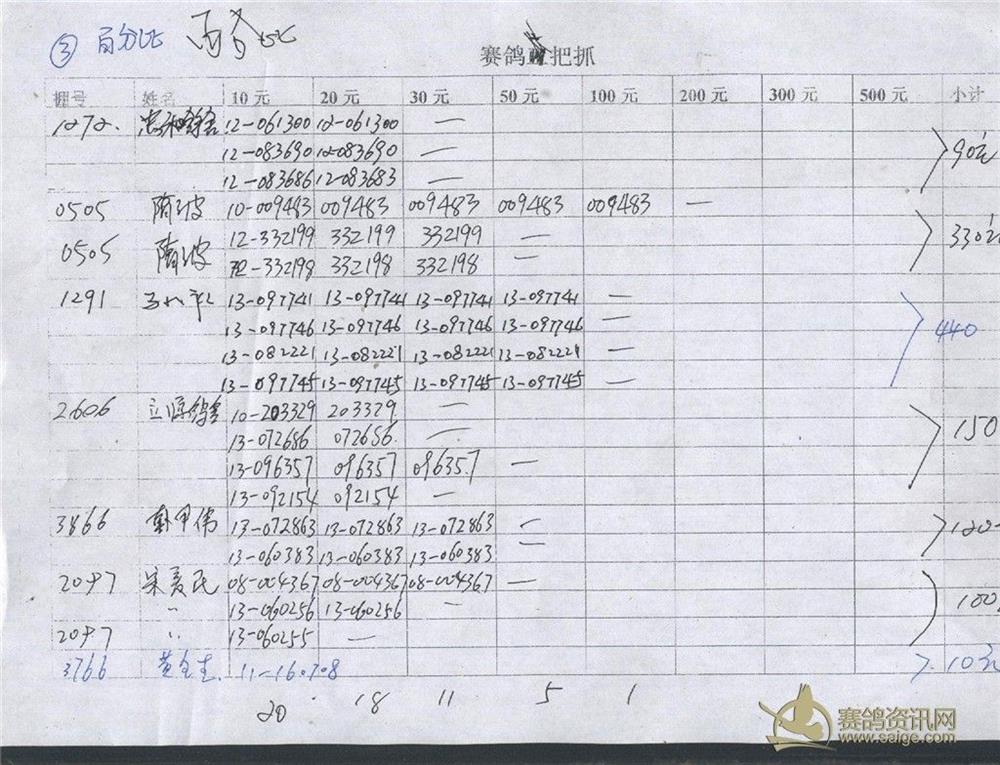 ③ 百分比 百分比
赛鸽把抓
棚号 姓名 10元 20元 30元 50元 100元 200元 300元 500元 小计
1272. 12-061300 12-061300 —
12-083690 12-083690 — 90元
12-083686 12-083683 —
0505 隋波 10-009483 009483 009483 009483 009483 —
12-332199 332199 332199 — 330元
0505 隋波 12-332198 332198 332198 —
1291 13-097741 13-097741 13-097741 13-097741 —
13-097746 13-097746 13-097746 13-097746 — 440
13-082221 13-082221 13-082221 13-082221 —
13-097745 13-097745 13-097745 13-097745 —
2606 10-203329 203329 —
13-072686 072686. — 150
13-096357 096357 096357 —
13-092154 092154 —
3866 13-072863 13-072863 13-072863 — 120-
13-060383 13-060383 13-060383 —
2097 宋爱民 08-004367 08-004367 08-004367 —
〃 13-060256 13-060256 — 100
2097 〃 13-060255 —
3766 11-160708 10元
20 18 11 5 1
赛鸽资讯网
www.saige.com